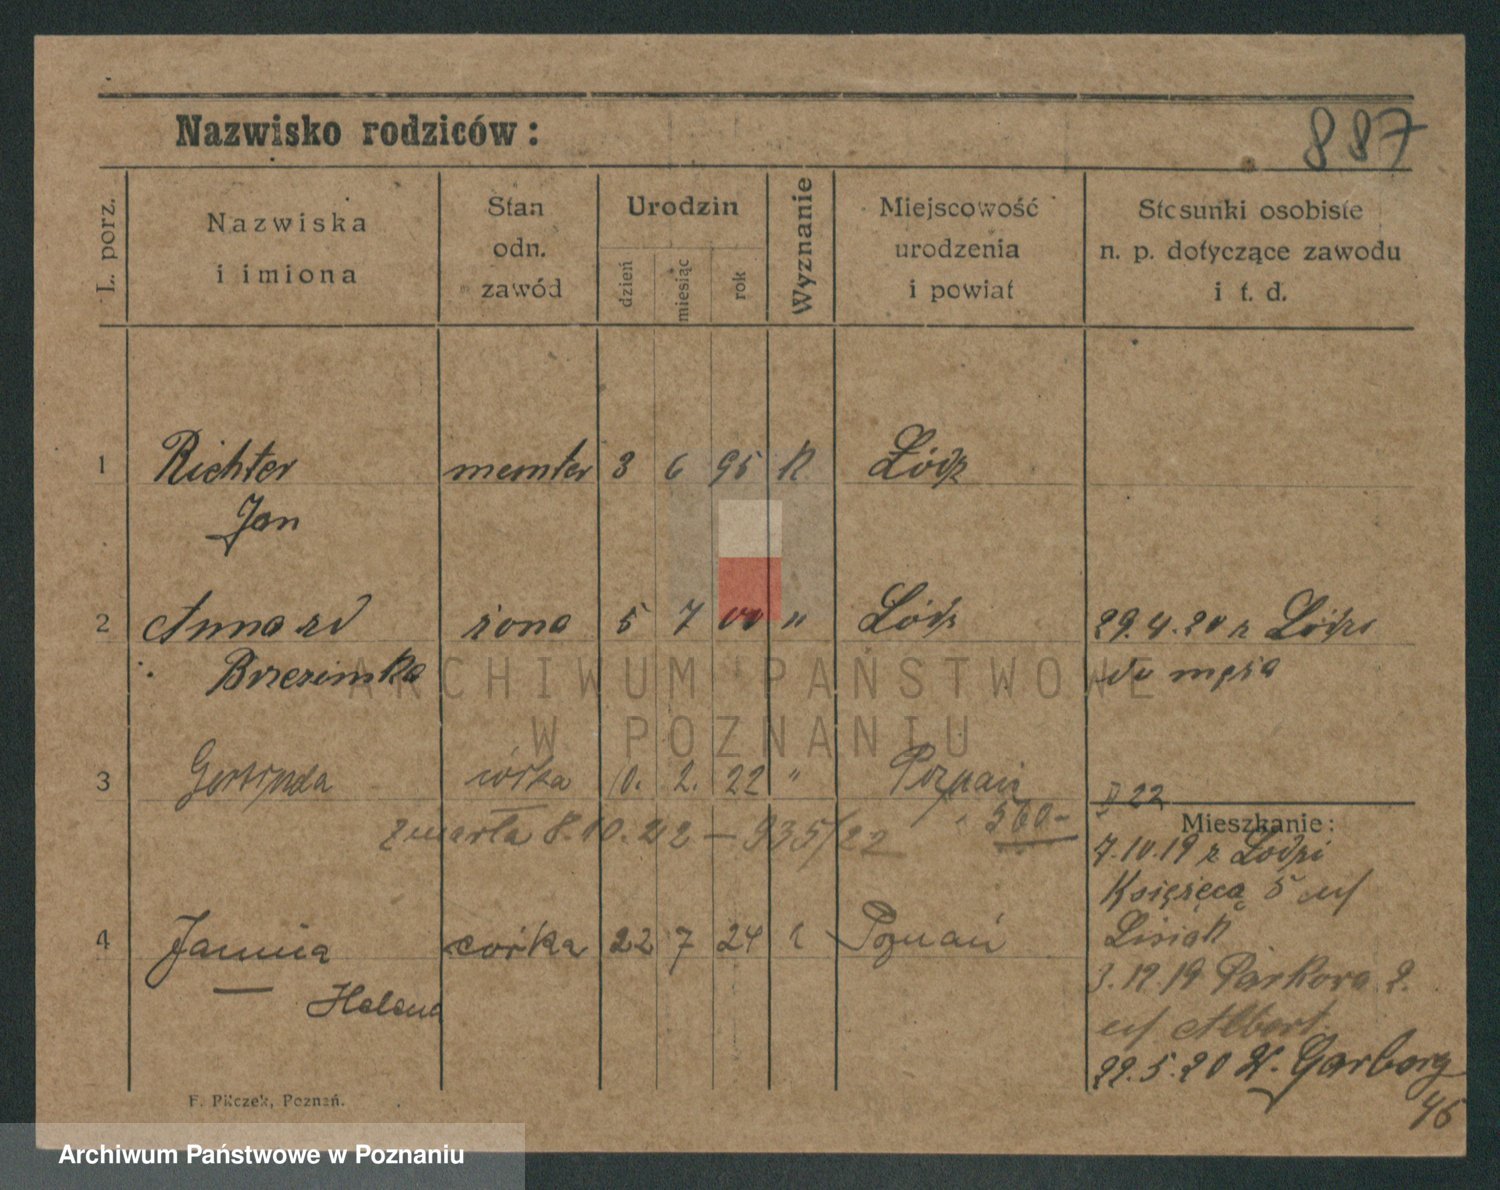 887
Nazwisko rodziców:
L. porz.
Nazwiska
i imiona
Stan
odn.
zawód
Urodzin
dzień
miesiąc
rok
Wyznanie
Miejscowość
urodzenia
i powiat
Stosunki osobiste
n. p. dotyczące zawodu
i t. d.
1 Richter monter 3 6 95 K Łódź
Jan
2 Anna zd żona 5 7 00 " Łódź 29.4.20 z Łodzi
Brzezinska do męża
3 Gertrynda córka 10. 2. 22 " Poznań
22
zmarła 8.10.22 — 935/22 560-
Mieszkanie:
7.10.19 z Łodzi
Książęca 5 u/
Lisiak
4 Janina córka 22 7 24 Poznań
Helena
3.12.19 Parkowa 2.
u/ Albert.
22.5.20 W. Garbary
46
F. Pilczek, Poznań.
ARCHIWUM PAŃSTWOWE
W POZNANIU
Archiwum Państwowe w Poznaniu